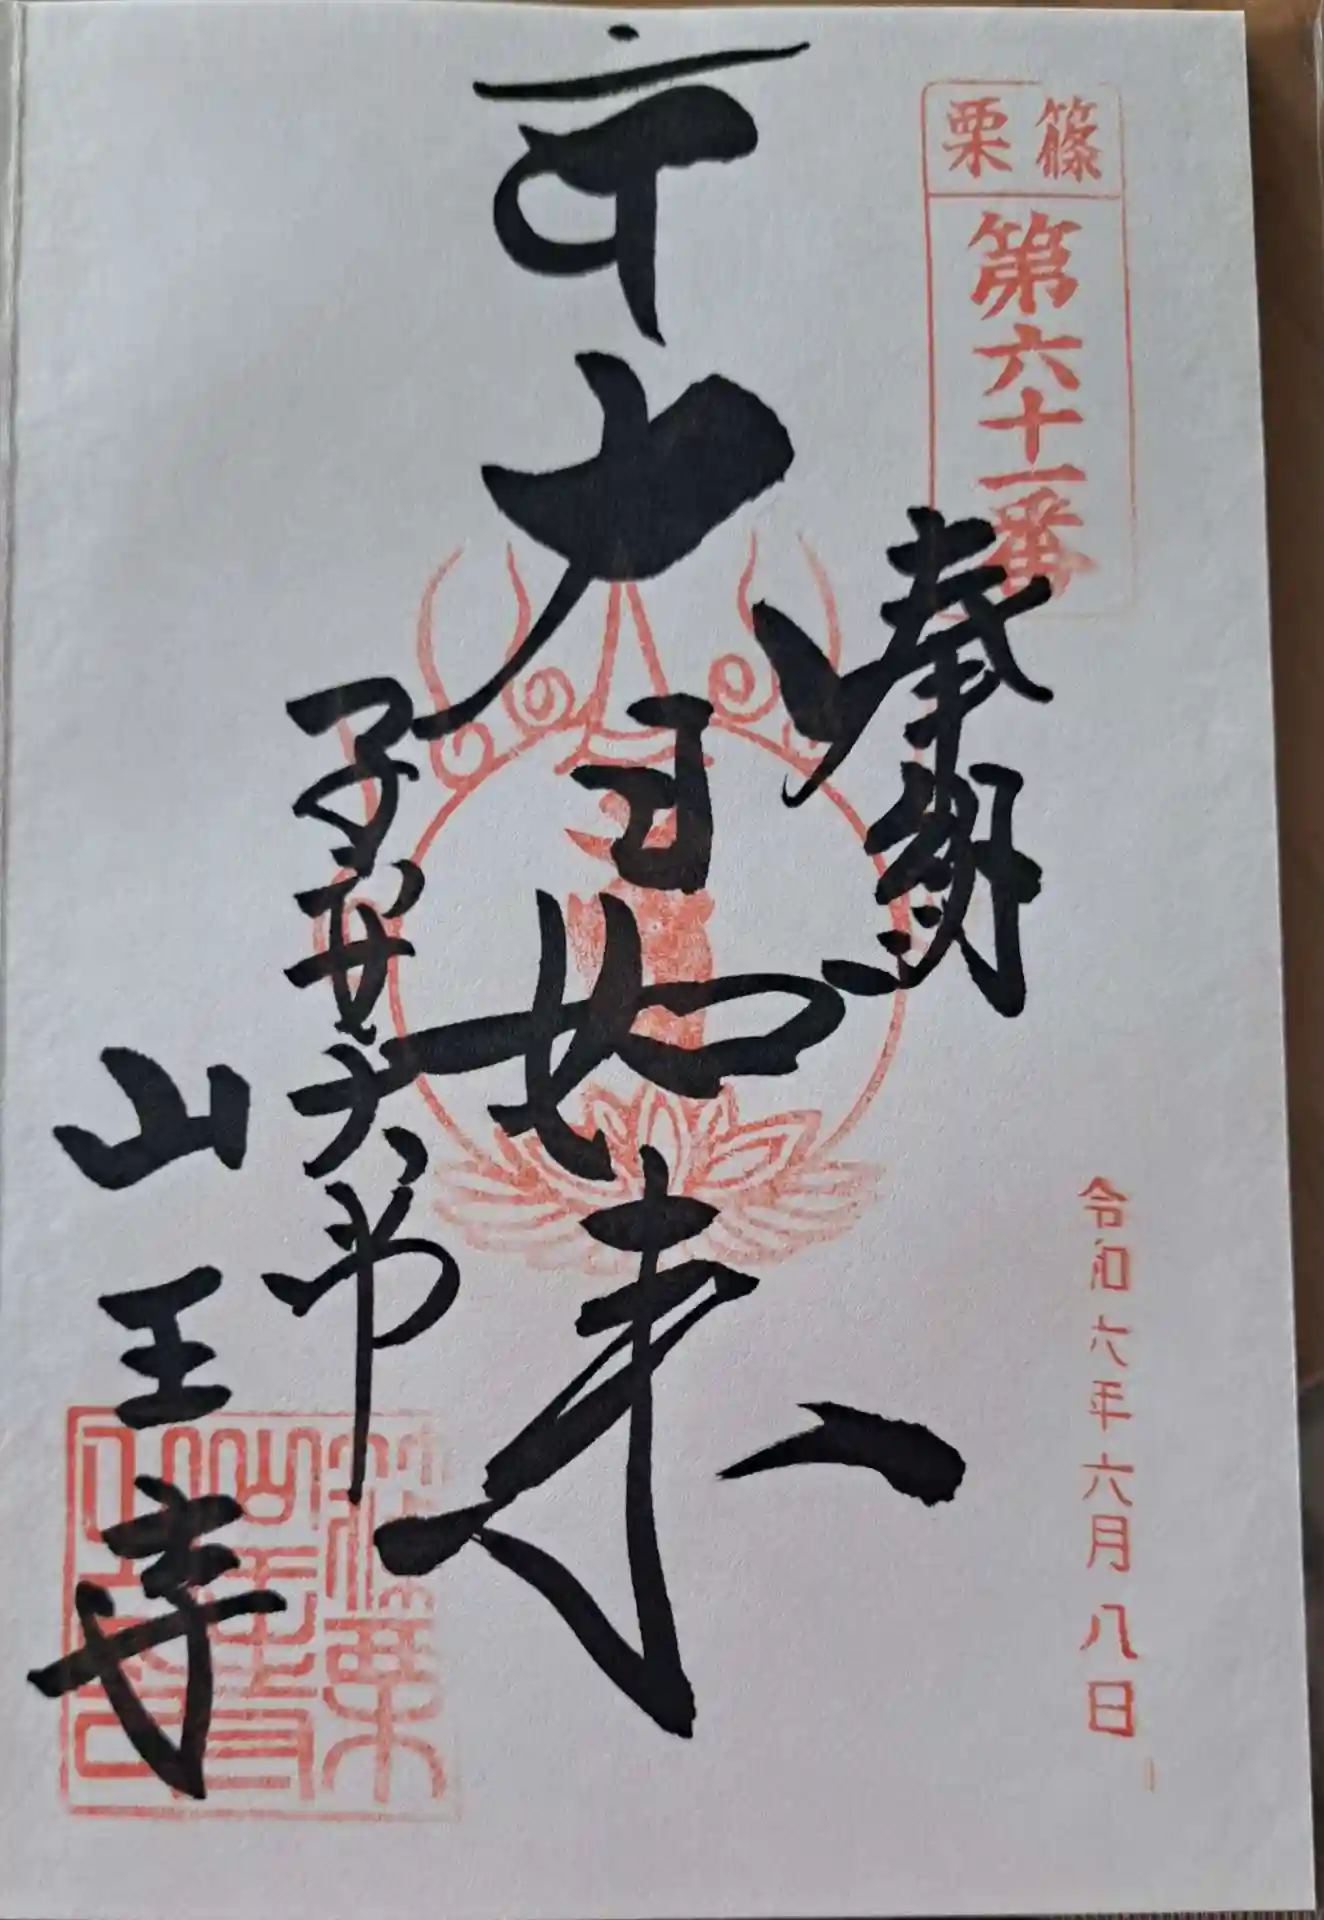 篠栗
第六十一番
奉拝
令和六年六月八日
大日如来
子安大師
山王寺